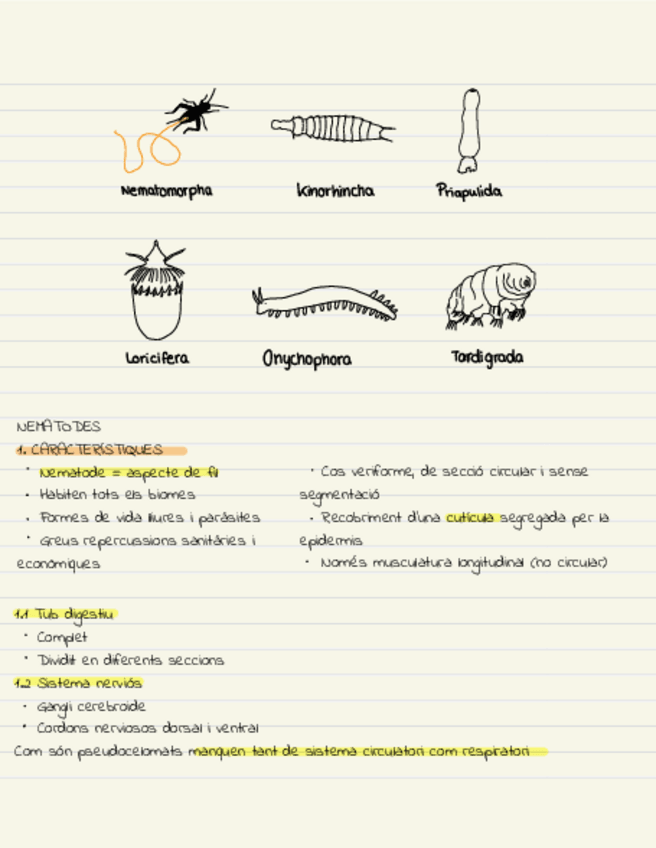 Nematomorpha
Kinorhincha
Priapulida
Loricifera
Onychophora
Tardigrada
NEMATODES
1. CARACTERÍSTIQUES
· Nematode = aspecte de fil
· Habiten tots els biomes
· Formes de vida lliures i paràsites
· Greus repercussions sanitàries i
econòmiques
· Cos veriforme, de secció circular i sense
segmentació
· Recobriment d'una cutícula segregada per la
epidermis
· Només musculatura longitudinal (no circular)
1.1 Tub digestiu
· Complet
· Dividit en diferents seccions
1.2 Sistema nerviós
· Gangli cerebroide
· Cordons nerviosos dorsal i ventral
Com són pseudocelomats manquen tant de sistema circulatori com respiratori